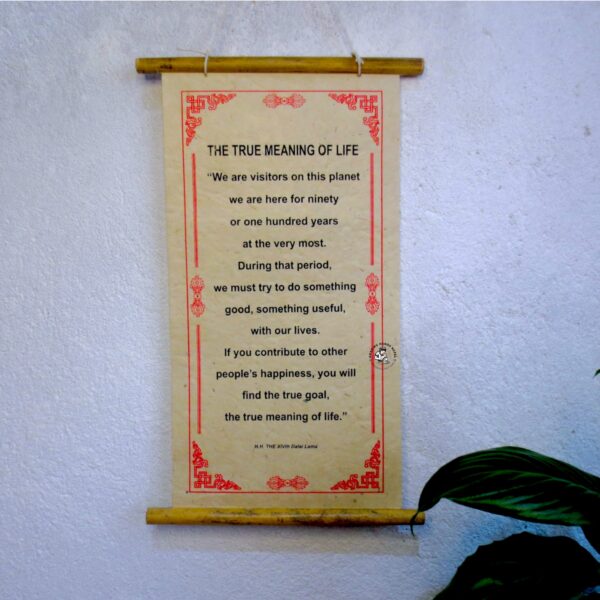 THE TRUE MEANING OF LIFE
"We are visitors on this planet
we are here for ninety
or one hundred years
at the very most.
During that period,
we must try to do something
good, something useful,
with our lives.
If you contribute to other
people's happiness, you will
find the true goal,
the true meaning of life."
H.H. THE XIVth Dalai Lama